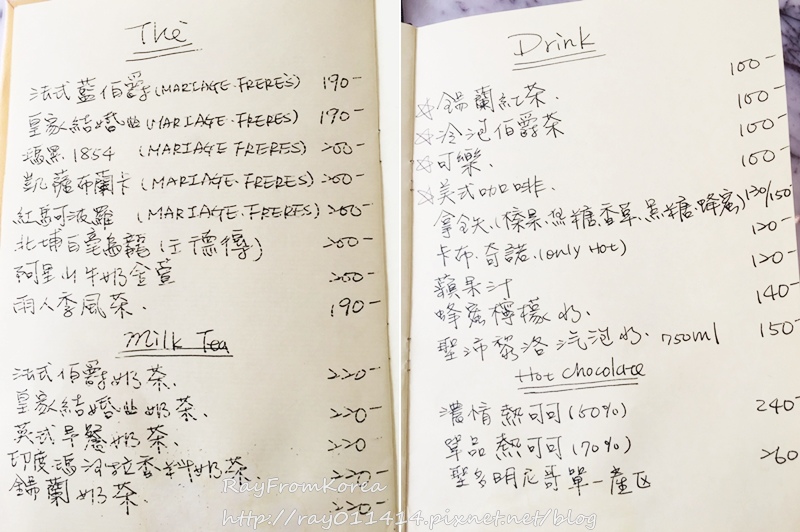 Thé
法式藍伯爵(MARIAGE.FRERES) 190-
皇家結婚曲(MARIAGE.FRERES) 190-
1854 (MARIAGE FRERES) 200-
凱薩布蘭卡(MARIAGE.FRERES) 200-
紅馬可波羅(MARIAGE.FRERES) 200-
北埔白毫烏龍(王德傳) 200-
阿里山牛奶金萱 200-
雨人季風茶. 190-
Milk Tea
法式伯爵奶茶. 220-
皇家結婚曲奶茶. 220-
英式早餐奶茶. 220
印度瑪沙拉香料奶茶. 220-
錫蘭奶茶. 220-
Drink
☆錫蘭紅茶. 100-
☆冷泡伯爵茶 100-
☆可樂. 100-
☆美式咖啡. 100-
拿鐵(榛果.焦糖.香草.黑糖.蜂蜜) 130/150-
卡布.奇諾.(only Hot) 120-
蘋果汁 120-
蜂蜜檸檬水. 140-
聖沛黎洛汽泡水. 750ml 150-
Hot chocolate
濃情熱可可(50%) 240-
單品熱可可(70%) 260
聖多明尼哥單一產区
RayFromKorea
http://ray011414.pixnet.net/blog